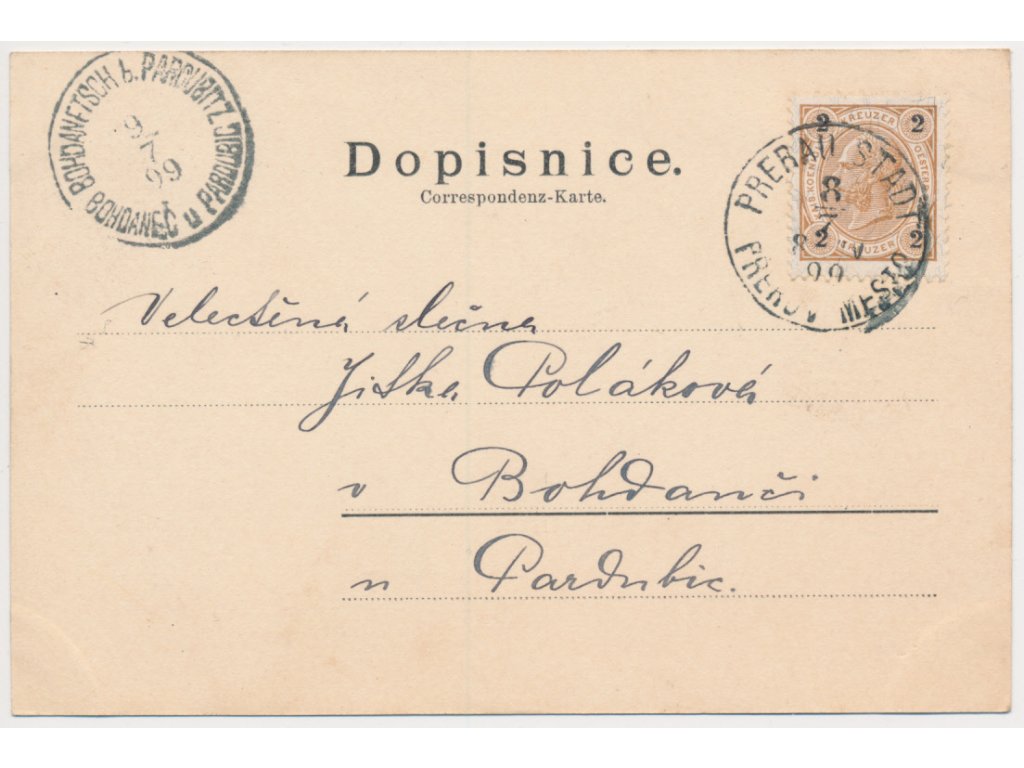 BOHDANETSCH b. PARDUBITZ
9/7
99
BOHDANEČ u PARDUBIC
Dopisnice.
Correspondenz-Karte.
2 KREUZER 2
2 KREUZER 2
PRERAU STADT
8
7
99
PŘEROV MĚSTO
Velectěná slečna
Jitka Poláková
v Bohdanči
u Pardubic.